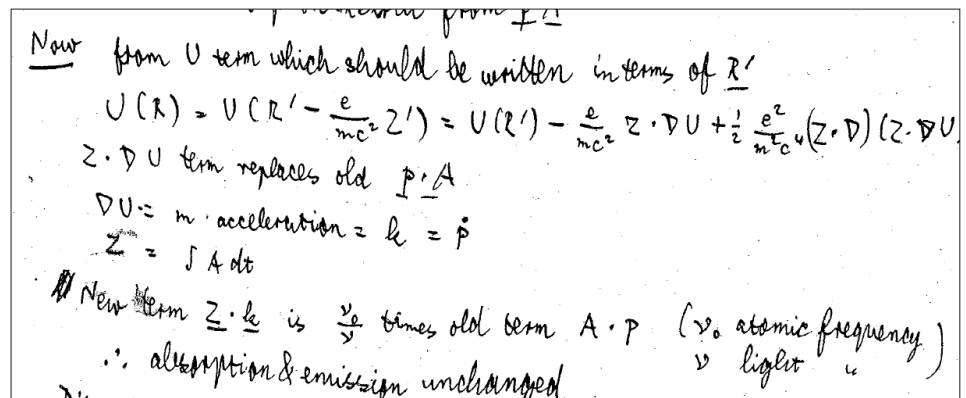 from p A
Now from U term which should be written in terms of R'
U(R) = U(R' - e/mc² Z') = U(R') - e/mc² Z·∇U + ½ e²/m²c⁴ (Z·∇)(Z·∇U
Z·∇U term replaces old p·A
∇U = m·acceleration = k = ṗ
Z = ∫A dt
New term Z·k is ν₀/ν times old term A·p (ν₀ atomic frequency
ν light " )
∴ absorption & emission unchanged